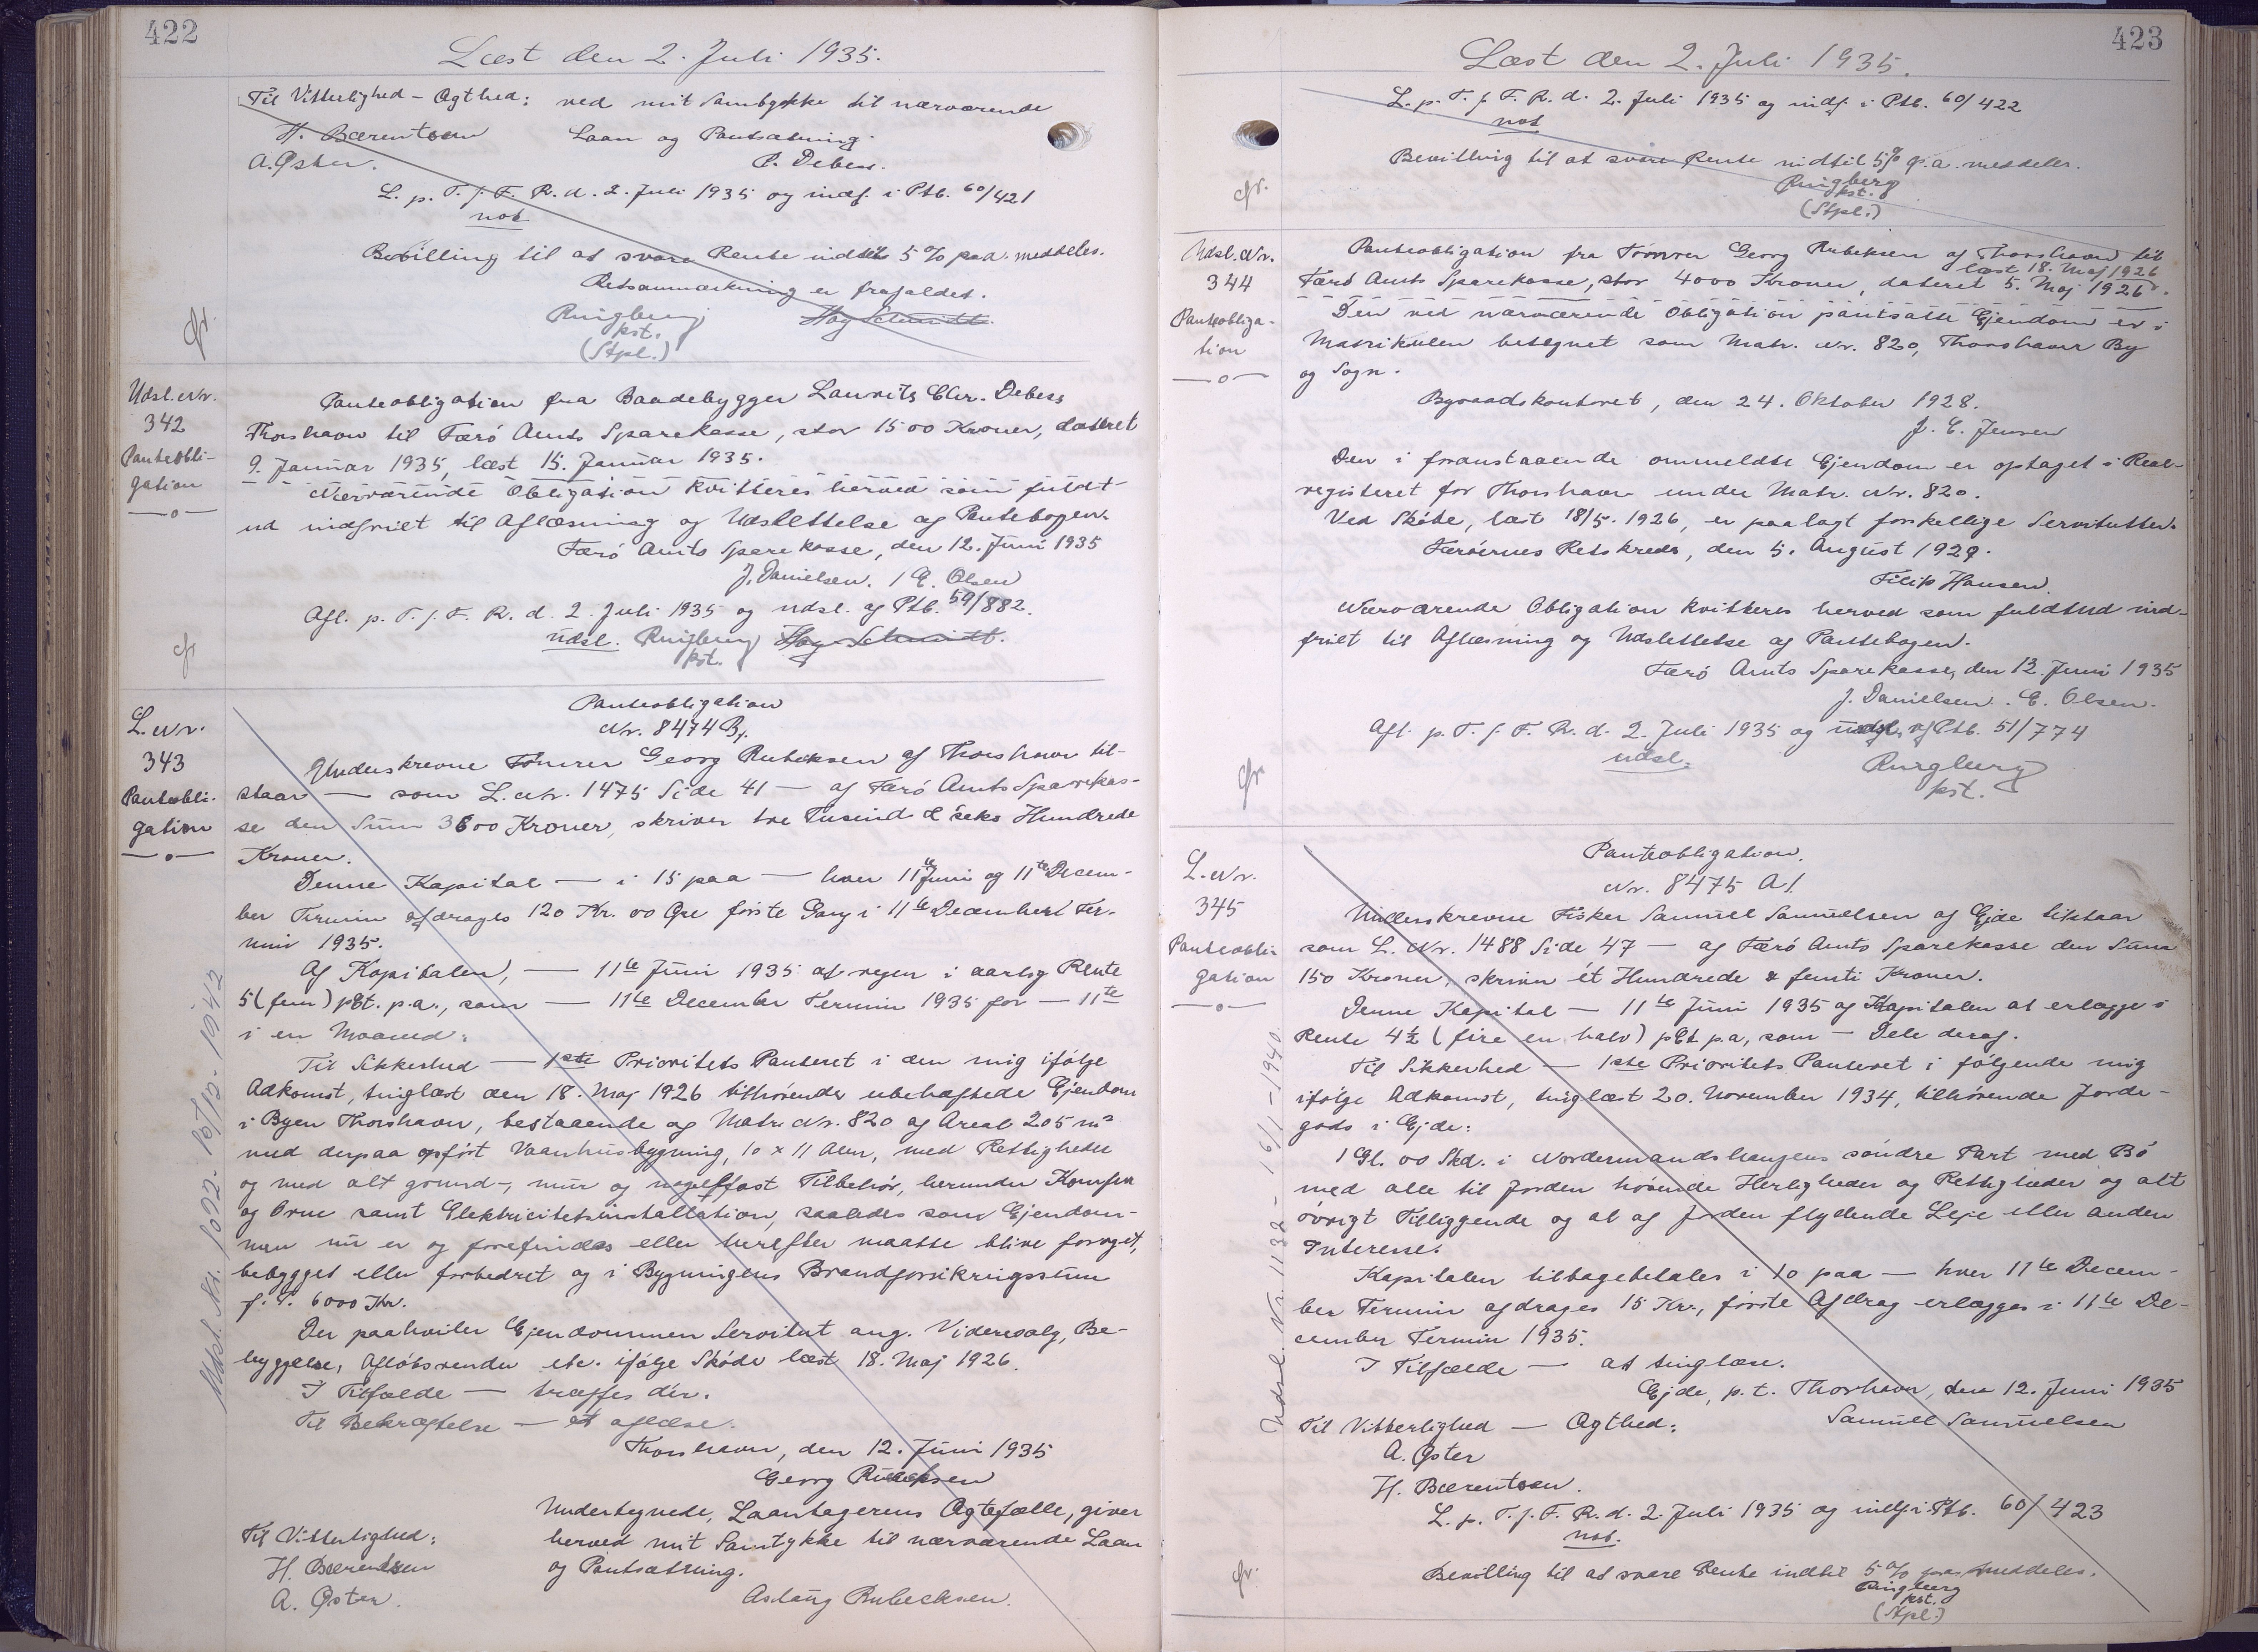 422
Læst den 2. Juli 1935.
Til Vitterlighed - Ægthed: ved mit Samtykke til nærværende
H. Bærentsen Laan og Pantsætning.
A. Øster. P. Debess.
L. p. T. f. F. R. d. 2. Juli 1935 og indf. i Ptb. 60/421
not
Bevilling til at svare Rente indtil 5 % p.a. meddeles.
Retsanmærkning er frafaldet.
Ringberg Hag Schmidt.
kst.
(Stpl.)
cfr.
Udsl. Nr.
342
Panteobli-
gation
—o—
Panteobligation fra Baadebygger Laurits Chr. Debess
Thorshavn til Færö Amts Sparekasse, stor 1500 Kroner, dateret
9. Januar 1935, læst 15. Januar 1935.
Nærværende Obligation kvitteres herved som fuldt-
ud indfriet til Aflæsning og Udslettelse af Pantebogen.
Færö Amts Sparekasse, den 12. Juni 1935
J. Danielsen. / E. Olsen
Afl. p. T. f. F. R. d. 2. Juli 1935 og udsl. af Ptb. 59/882.
udsl. Ringberg Hag Schmidt.
kst.
cfr
L. Nr.
343
Panteobli-
gation
—o—
Panteobligation
Nr. 8474 B/.
Underskrevne Tömrer Georg Rubeksen af Thorshavn til-
staar — som L. Nr. 1475 Side 41 — af Færö Amts Sparekas-
se den Sum 3600 Kroner, skriver tre Tusind & seks Hundrede
Kroner.
Denne Kapital — i 15 paa — hver 11te Juni og 11te Decem-
ber Termin afdrages 120 Kr. 00 Øre förste Gang i 11te December Ter-
min 1935.
Af Kapitalen, — 11te Juni 1935 at regne i aarlig Rente
5 (fem) pCt. p.a., som — 11te December Termin 1935 for — 11te
i en Maaned:
Til Sikkerhed — 1ste Prioritets Panteret i den mig ifölge
Adkomst, tinglæst den 18. Maj 1926 tilhörende ubehæftede Ejendom
i Byen Thorshavn, bestaaende af Matr. Nr. 820 af Areal 205 m²
med derpaa opfört Vaanhusbygning, 10 x 11 Alen, med Rettigheder
og med alt grund-, mur og nagelfast Tilbehör, herunder Komfur
og Ovne samt Elektricitetsinstallation, saaledes som Ejendom-
men nu er og forefindes eller herefter maatte blive forøget,
bebygget eller forbedret og i Bygningens Brandforsikringssum
f. T. 6000 Kr.
Der paahviler Ejendommen Servitut ang. Videresalg, Be-
byggelse, Aflöbsrender etc. ifölge Sköde læst 18. Maj 1926.
I Tilfælde — træffes dér.
Til Bekræftelse — at aflæse.
Thorshavn, den 12. Juni 1935
Georg Rubeksen
Undertegnede, Laantagerens Ægtefælle, giver
Til Vitterlighed: herved mit Samtykke til nærværende Laan
H. Bærentsen og Pantsætning.
A. Øster. Aslaug Rubecksen.
Udsl. Nr. 1022- 15/12- 1942
423
Læst den 2. Juli 1935.
L. p. T. f. F. R. d. 2. Juli 1935 og indf. i Ptb. 60/422
not
Bevilling til at svare Rente indtil 5% p.a. meddeles.
Ringberg
kst.
(Stpl.)
cfr.
Udsl. Nr.
344
Panteobliga-
tion
—o—
Panteobligation fra Tömrer Georg Rubeksen af Thorshavn til
læst 18. Maj 1926
Færö Amts Sparekasse, stor 4000 Kroner, dateret 5. Maj 1926.
Den ved nærværende Obligation pantsatte Ejendom er i
Matrikulen betegnet som Matr. Nr. 820, Thorshavn By
og Sogn.
Byraadskontoret, den 24. Oktober 1928.
J. C. Jensen
Den i foranstaaende ommeldte Ejendom er optaget i Real-
registeret for Thorshavn under Matr. Nr. 820.
Ved Sköde, læst 18/5. 1926, er paalagt forskellige Servitutter.
Færöernes Retskreds, den 5. August 1929.
Filip Hansen.
Nærværende Obligation kvitteres herved som fuldtud ind-
friet til Aflæsning og Udslettelse af Pantebogen.
Færö Amts Sparekasse, den 12. Juni 1935
J. Danielsen. E. Olsen.
Afl. p. T. f. F. R. d. 2. Juli 1935 og udsl. af Ptb. 51/774
udsl. Ringberg
kst.
cfr
L. Nr.
345
Panteobli-
gation
—o—
Panteobligation.
Nr. 8475 A/.
Underskrevne Fisker Samuel Samuelsen af Ejde tilstaar
som L. Nr. 1488 Side 47 — af Færö Amts Sparekasse den Sum
150 Kroner, skriver ét Hundrede & femti Kroner.
Denne Kapital — 11te Juni 1935 af Kapitalen at erlægge i
Rente 4½ (fire en halv) pCt p.a, som — Dele deraf.
Til Sikkerhed — 1ste Prioritets Panteret i fölgende mig
ifölge Adkomst, tinglæst 20. November 1934, tilhörende Jorde-
gods i Ejde:
1 Gl. 00 Skd. i Nordermandshaugens söndre Part med Bö
med alle til Jorden hörende Herligheder og Rettigheder og alt
övrigt Tilliggende og al af Jorden flydende Leje eller anden
Interesse.
Kapitalen tilbagebetales i 10 paa — hver 11te Decem-
ber Termin afdrages 15 Kr., förste Afdrag erlægges i 11te De-
cember Termin 1935.
I Tilfælde — at tinglæse.
Ejde, p. t. Thorshavn, den 12. Juni 1935
Til Vitterlighed — Ægthed: Samuel Samuelsen
A. Øster
H. Bærentsen.
L. p. T. f. F. R. d. 2. Juli 1935 og indf. i Ptb. 60/423
not.
Bevilling til at svare Rente indtil 5 % p.a. meddeles.
Ringberg
kst.
(Stpl.)
cfr.
Udsl. Nr. 1132 - 16/1 - 1940.